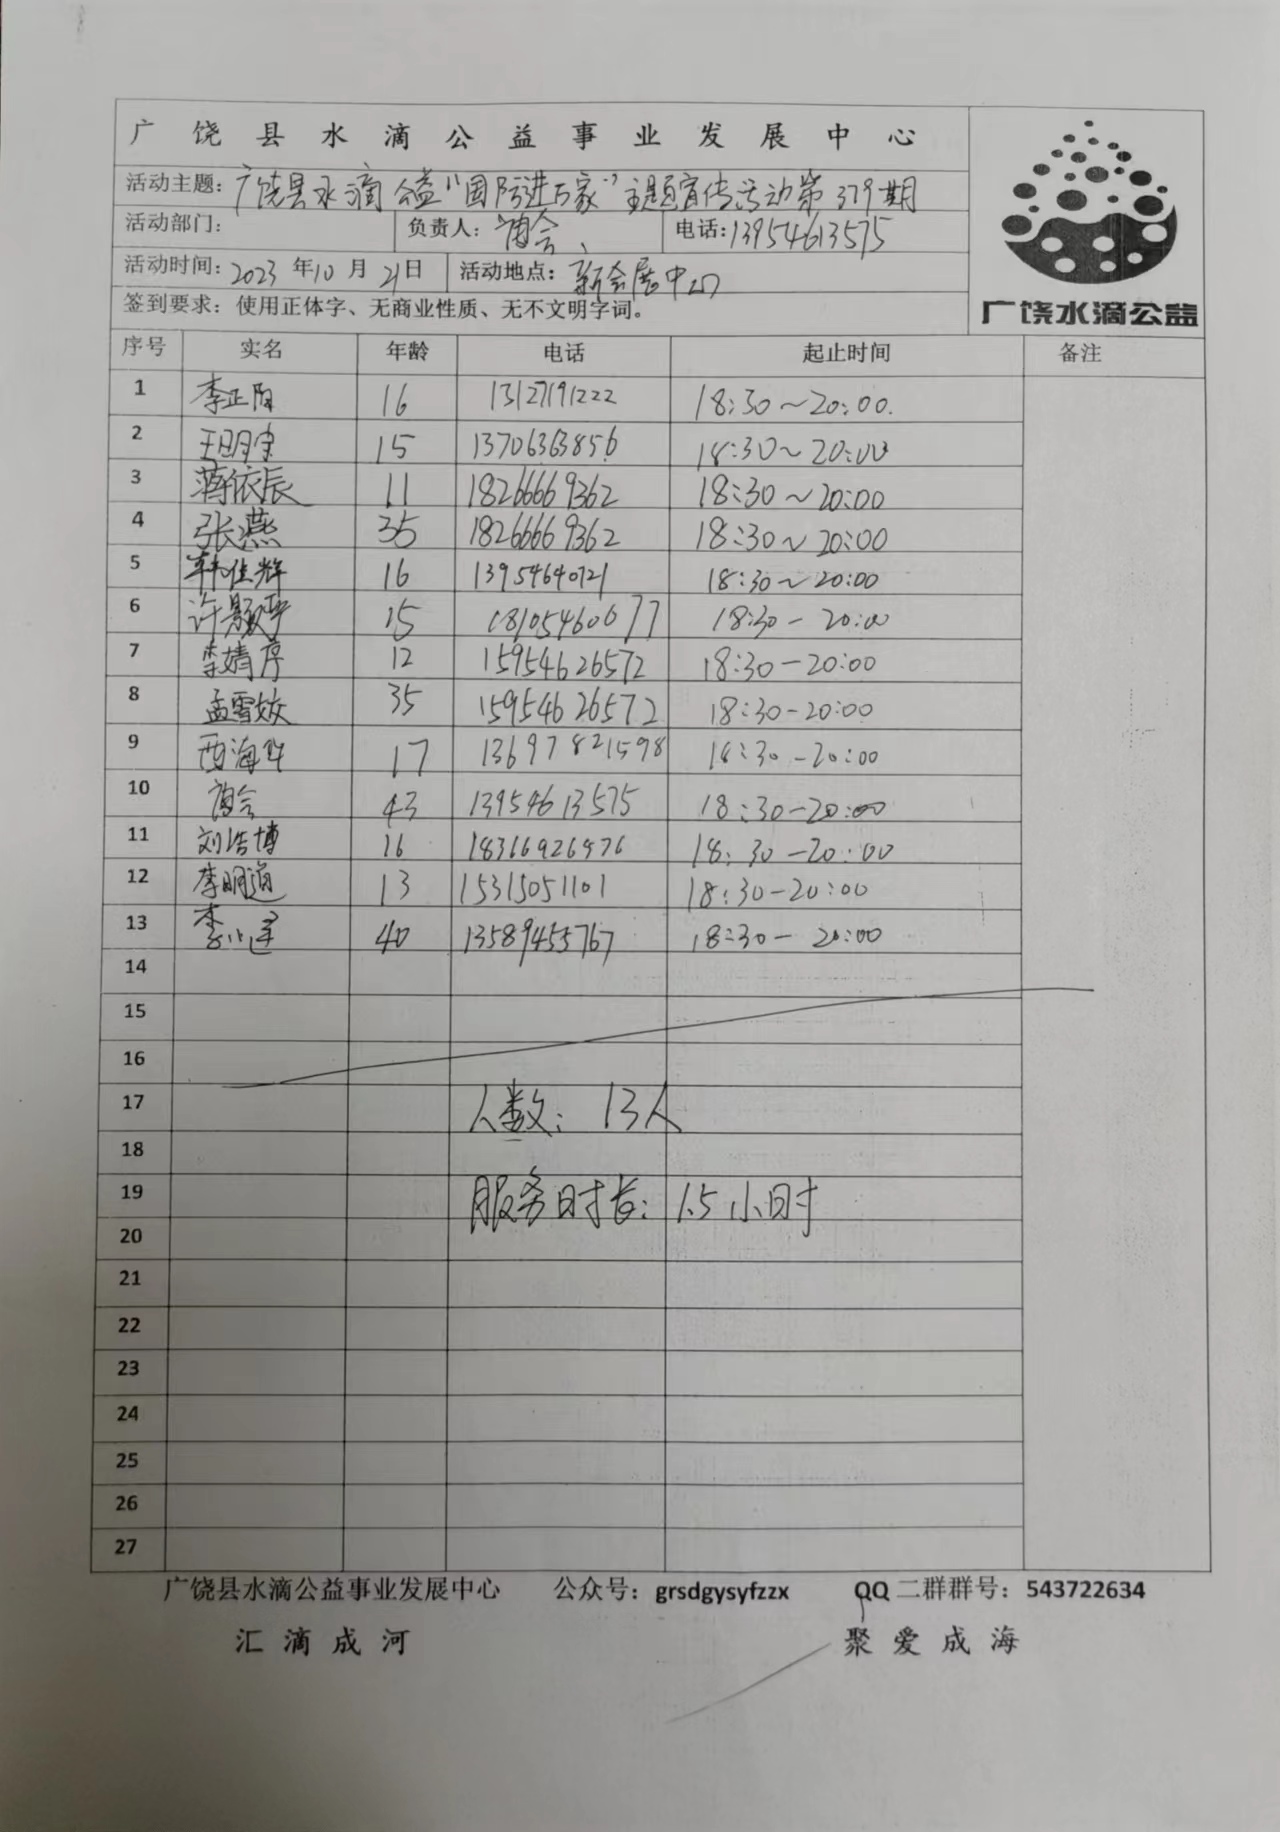 广饶县水滴公益事业发展中心
活动主题：广饶县水滴公益“国防进万家”主题宣传活动第379期
活动部门： 负责人： 电话：13954613575
活动时间：2023年10月21日 活动地点：新会展中心
签到要求：使用正体字、无商业性质、无不文明字词。
广饶水滴公益
序号 实名 年龄 电话 起止时间 备注
1 李正阳 16 13127191222 18:30～20:00.
2 王明宇 15 13706363856 18:30～20:00
3 蒋依辰 11 18266669362 18:30～20:00
4 张燕 35 18266669362 18:30～20:00
5 韩佳辉 16 13954640721 18:30～20:00
6 许颢 15 18105460677 18:30-20:00
7 李婧 12 15954626572 18:30-20:00
8 孟雪姣 35 15954626572 18:30-20:00
9 西海 17 13697821598 18:30-20:00
10 43 13954613575 18:30-20:00
11 刘浩博 16 18366926976 18:30-20:00
12 李明 13 15315051101 18:30-20:00
13 李 40 13589455767 18:30-20:00
14
15
16
17 人数：13人
18
19 服务时长：1.5小时
20
21
22
23
24
25
26
27
广饶县水滴公益事业发展中心 公众号：grsdgysyfzzx QQ二群群号：543722634
汇滴成河 聚爱成海